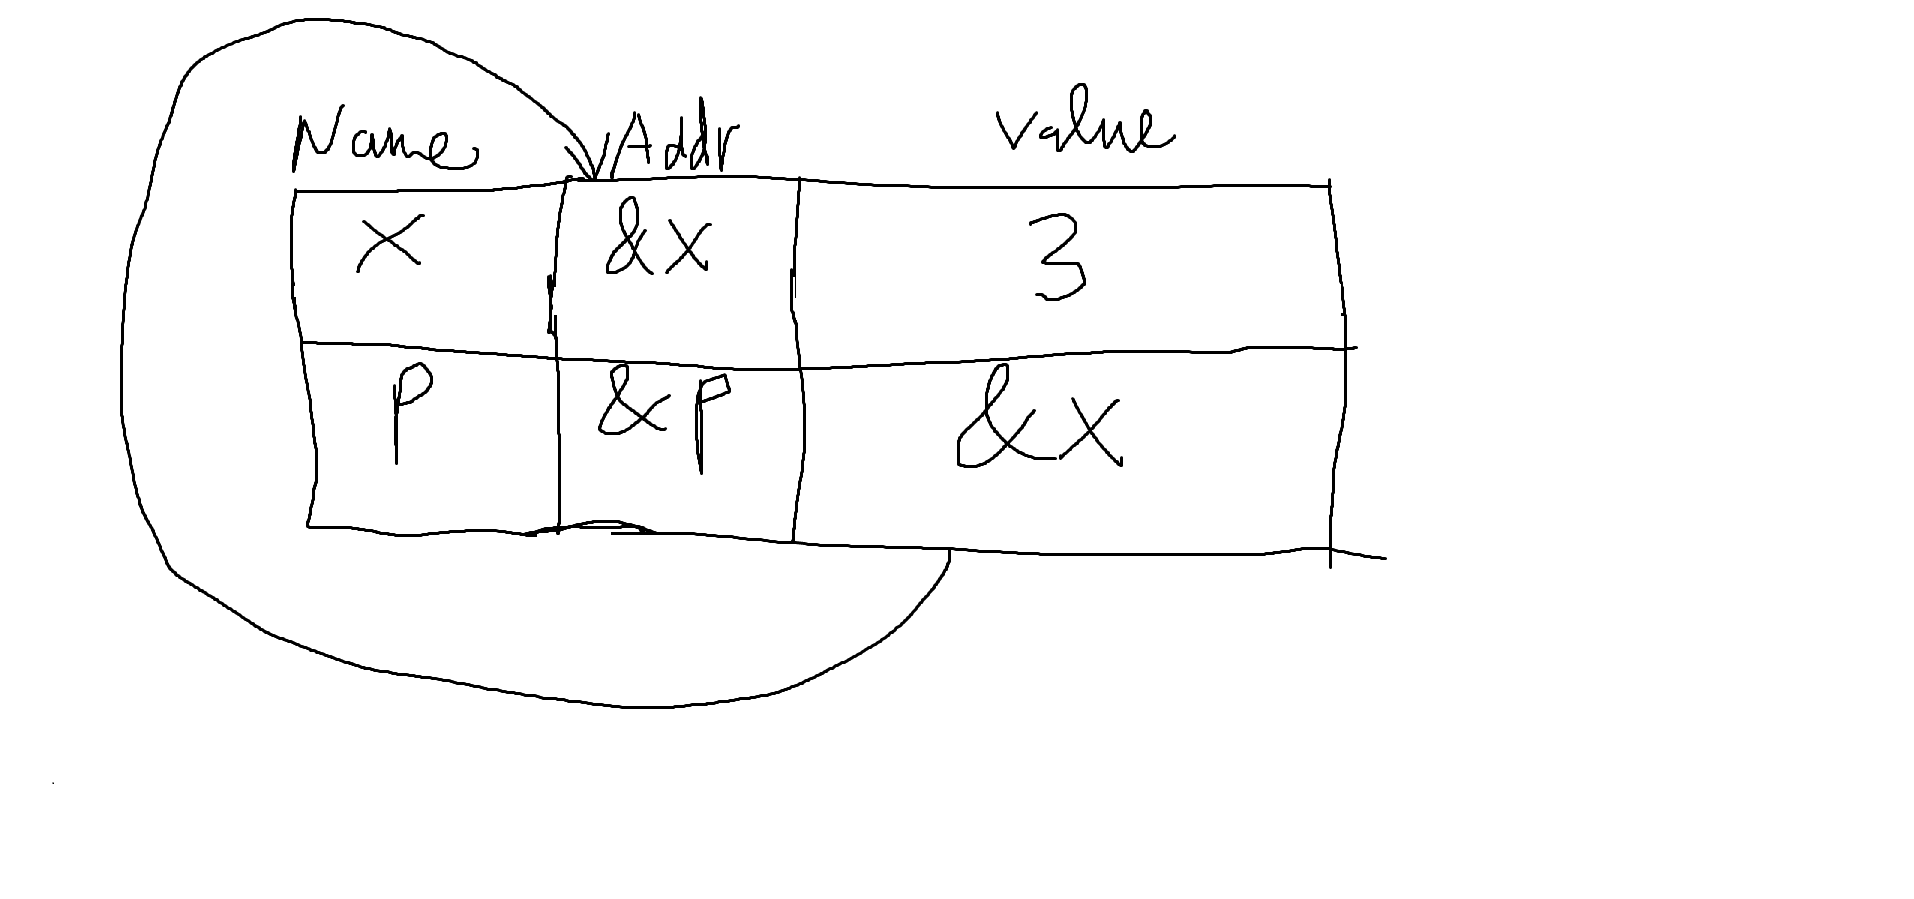 Name Addr Value
x &x 3
p &p &x